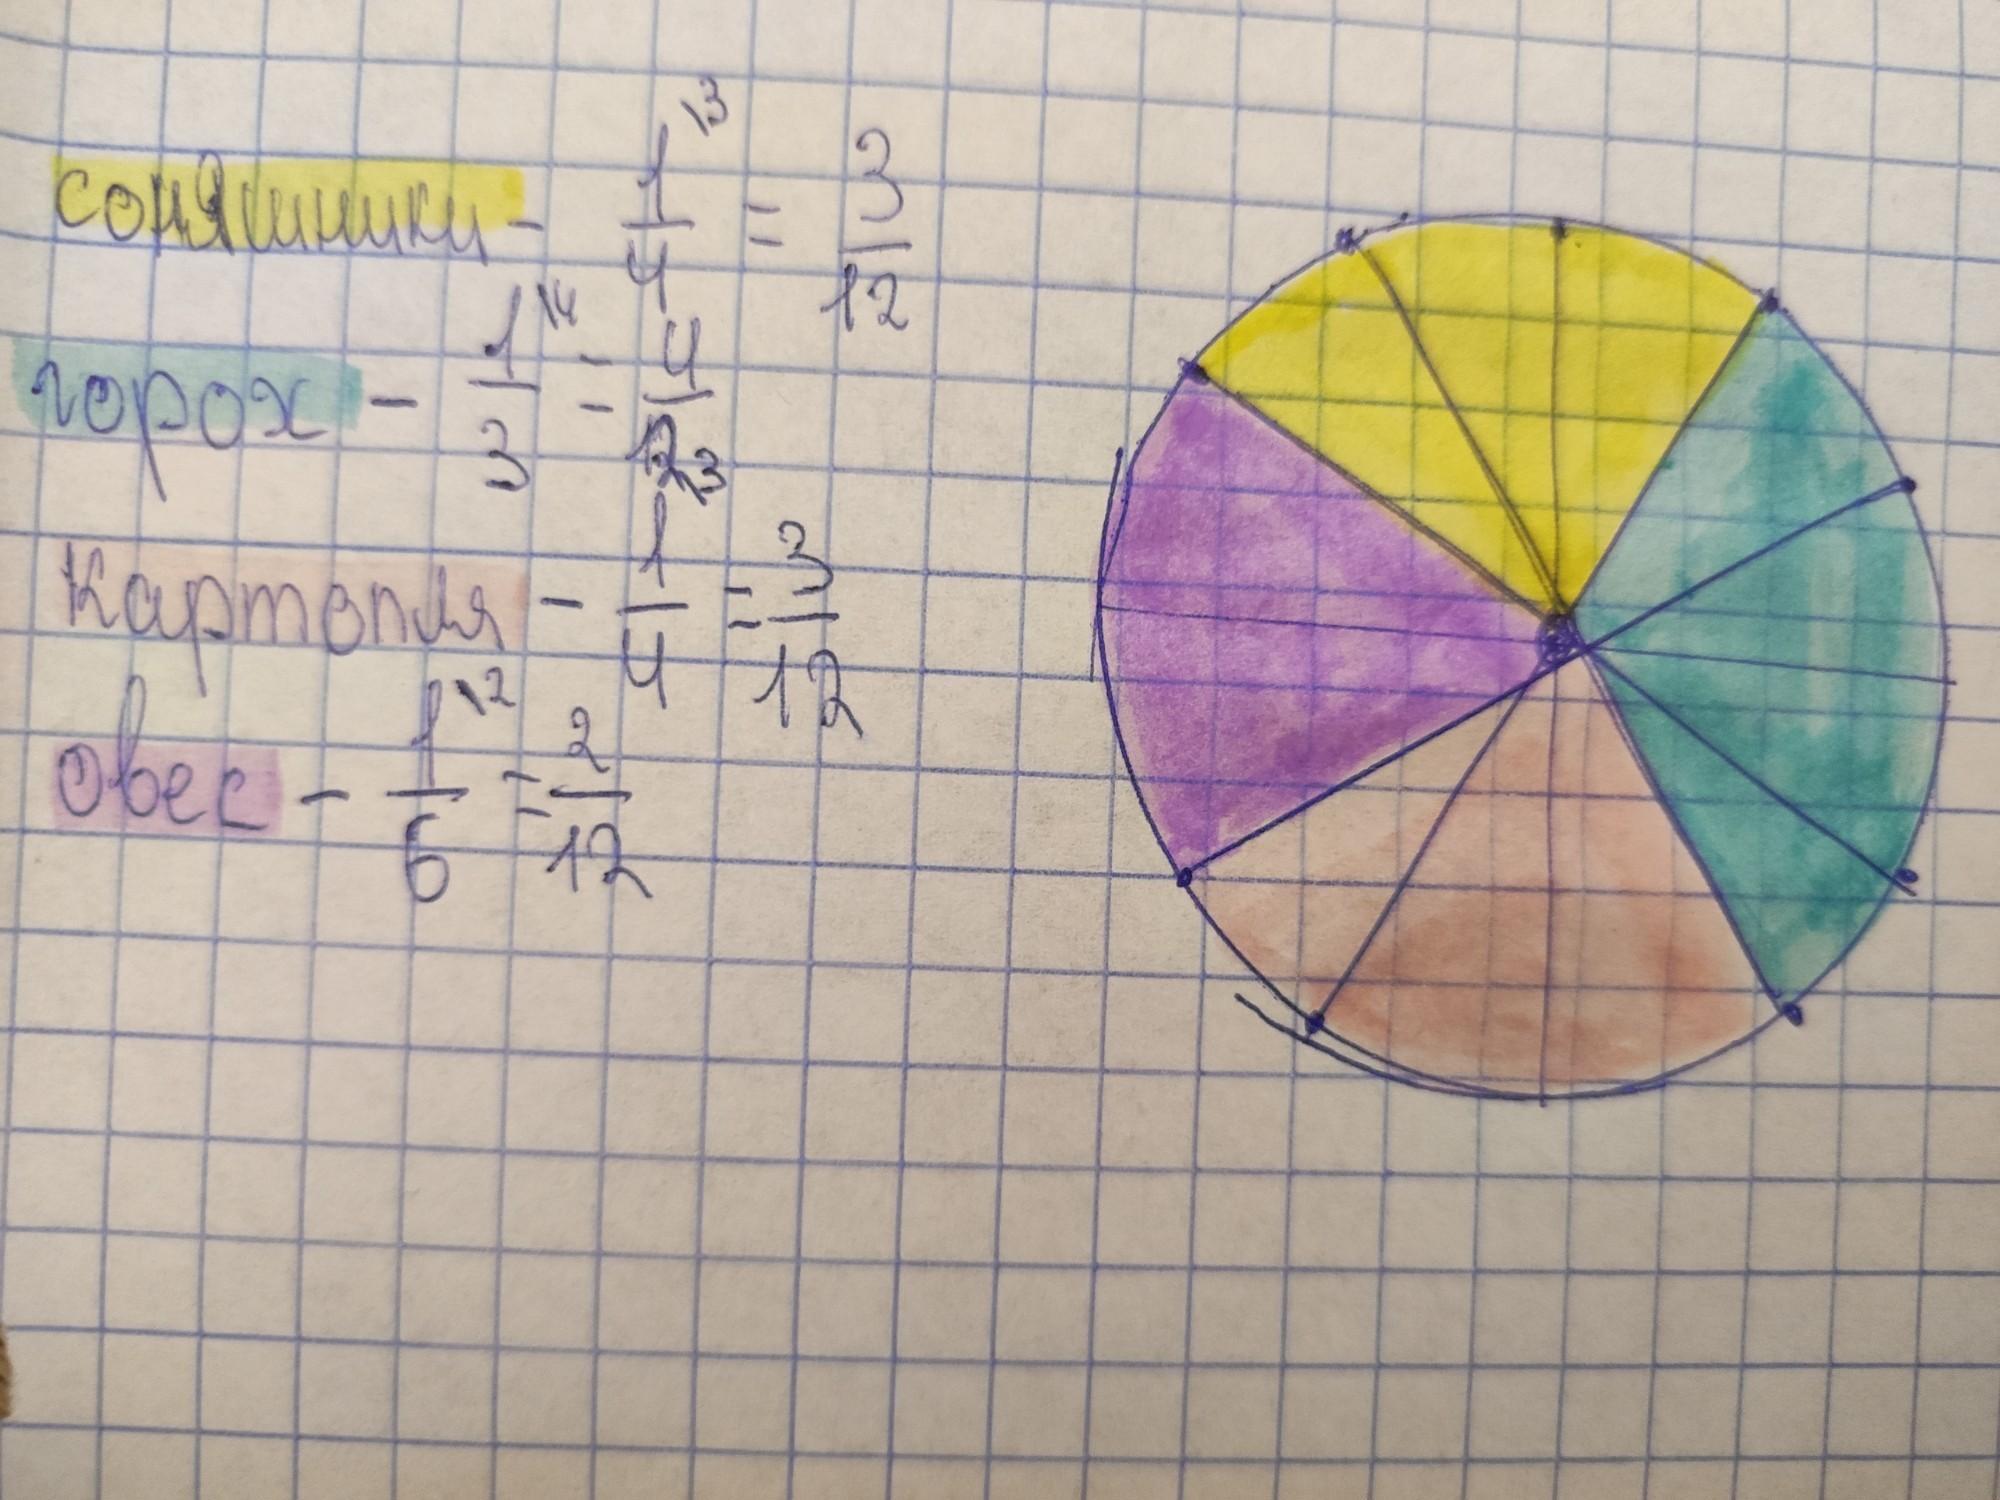 соняшники - 1/4 \3 = 3/12
горох - 1/3 \4 = 4/12
картопля - 1/4 \3 = 3/12
овес - 1/6 \2 = 2/12